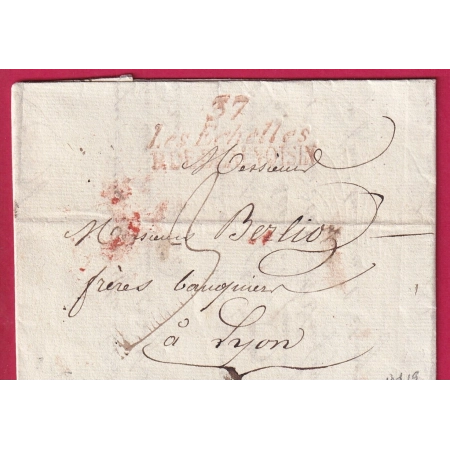 37
Les Echelles
Messieurs
Messieurs Berlioz
frères banquiers
à Lyon